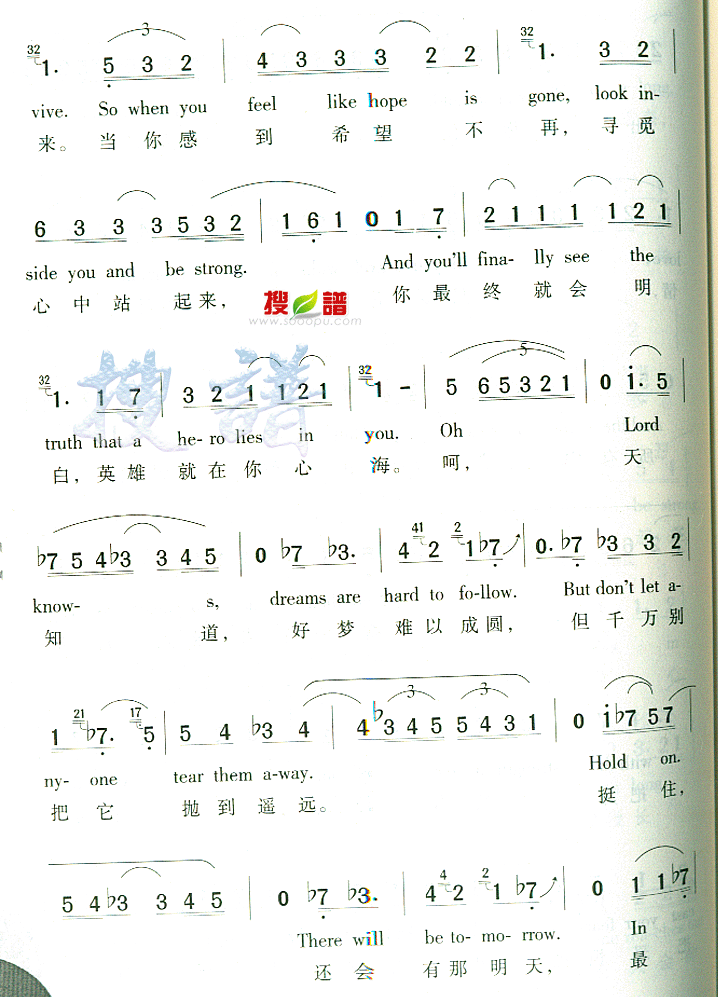 32 1. 5 3 2 | 4 3 3 3 2 2 | 32 1. 3 2 |
vive. So when you feel like hope is gone, look in-
来。当 你 感 到 希 望 不 再, 寻 觅
6 3 3 3 5 3 2 | 1 6 1 0 1 7 | 2 1 1 1 1 2 1 |
side you and be strong. And you'll fina- lly see the
心 中 站 起 来, 你 最 终 就 会 明
搜谱
www.sooopu.com
搜谱
32 1. 1 7 | 3 2 1 1 2 1 | 32 1 – | 5 6 5 3 2 1 | 0 1. 5
truth that a he-ro lies in you. Oh Lord
白, 英 雄 就 在 你 心 海。 呵, 天
♭7 5 4 ♭3 3 4 5 | 0 ♭7 ♭3. | 41 4 2 2 1 ♭7 | 0. ♭7 ♭3 3 2
know- s, dreams are hard to fo-llow. But don't let a-
知 道, 好 梦 难 以 成 圆, 但 千 万 别
1 21 ♭7. 17 5 | 5 4 ♭3 4 | 4 ♭3 4 5 5 4 3 1 | 0 1 ♭7 5 7
ny- one tear them a-way. Hold on.
把 它 抛 到 遥 远。 挺 住,
5 4 ♭3 3 4 5 | 0 ♭7 ♭3. | 4 4 2 2 1 ♭7 | 0 1 1 ♭7
There will be to-mo-rrow. In
还 会 有 那 明 天, 最